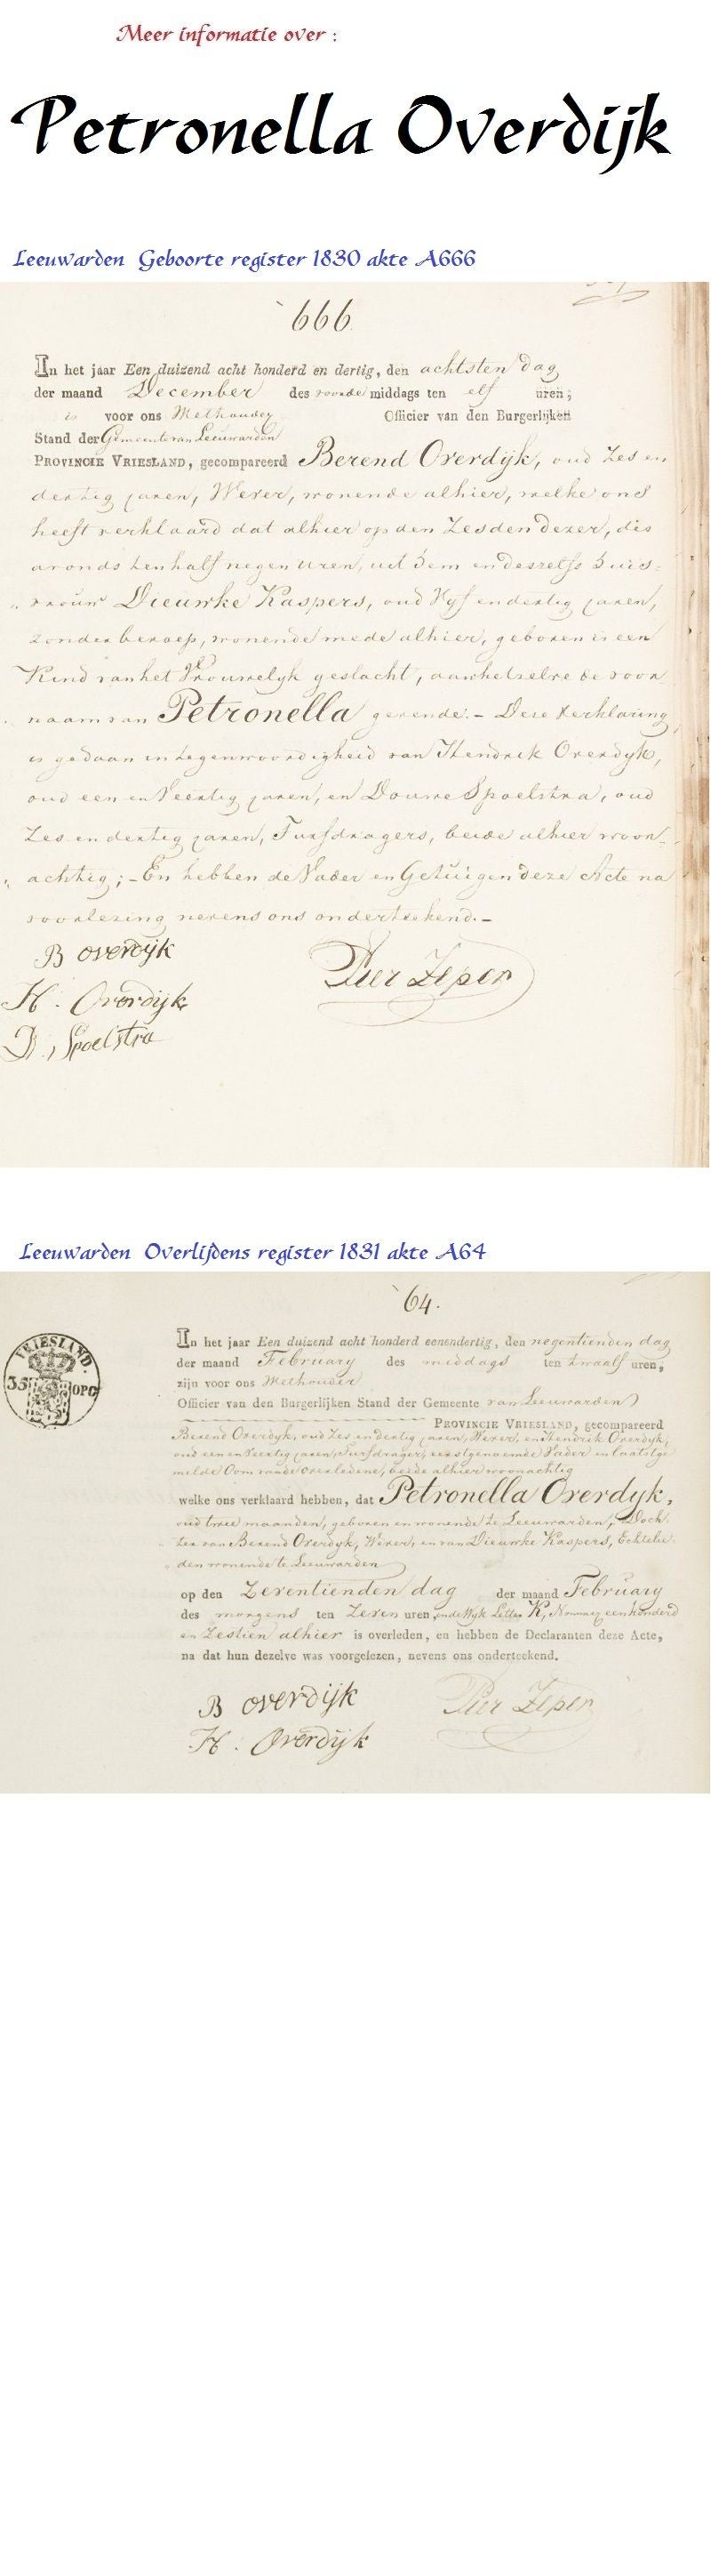 Meer informatie over :
Petronella Overdijk
Leeuwarden Geboorte register 1830 akte A666
666
In het jaar Een duizend acht honderd en dertig, den achtsten dag
der maand December des voorde middags ten elf uren;
is voor ons Wethouder Officier van den Burgerlijken
Stand der Gemeente van Leeuwarden
PROVINCIE VRIESLAND, gecompareerd Berend Overdijk, oud Zes en
dertig jaren, Wever, wonende alhier, welke ons
heeft verklaard dat alhier op den Zesden dezer, des
avonds ten half negen uren, uit hem en deszelfs huis=
vrouw Dieuwke Kaspers, oud Vyf en dertig jaren,
zonder beroep, wonende mede alhier, geboren is een
Kind van het Vrouwelyk geslacht, aan hetzelve de voor
naam van Petronella gevende. – Deze verklaring
is gedaan in tegenwoordigheid van Hendrik Overdyk,
oud een en Veertig jaren, en Douwe Spoelstra, oud
Zes en dertig jaren, Turfdragers, beide alhier woon-
achtig; – En hebben de Vader en Getuigen deze Acte na
voorlezing nevens ons onderteekend. –
B overdijk
Pier Zeper
H. Overdijk
D. Spoelstra
Leeuwarden Overlijdens register 1831 akte A64
64.
VRIESLAND.
35 OPC
In het jaar Een duizend acht honderd eenendertig, den negentienden dag
der maand February des middags ten twaalf uren,
zijn voor ons Wethouder
Officier van den Burgerlijken Stand der Gemeente van Leeuwarden
PROVINCIE VRIESLAND, gecompareerd
Berend Overdyk, oud Zes en dertig jaren, Wever, en Hendrik Overdyk,
oud een en Veertig jaren, Turfdrager, eerstgenoemde Vader en laatstge
melde Oom van de overledene, beide alhier woonachtig
welke ons verklaard hebben, dat Petronella Overdyk,
oud twee maanden, geboren en wonende te Leeuwarden, Doch
ter van Berend Overdyk, Wever, en van Dieuwke Kaspers, Echtelie
den wonende te Leeuwarden
op den Zeventienden dag der maand February
des morgens ten Zeven uren in de Wyk Letter K, Nommer eenhonderd
en Zestien alhier is overleden, en hebben de Declaranten deze Acte,
na dat hun dezelve was voorgelezen, nevens ons onderteekend.
B overdijk
Pier Zeper
H. Overdijk